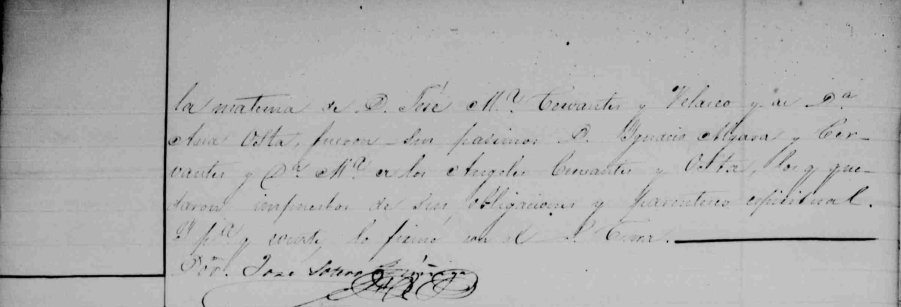 la materna de D. José M.ª Cervantes y Velasco y de D.ª
Ana Osta, fueron sus padrinos D. Ignacio Algara y Cer-
vantes y D.ª M.ª de los Angeles Cervantes y Osta, los q que-
daron impuestos de sus obligaciones y parentesco espiritual.
Y p.ª q conste lo firmó con el S. Cura.
Dor. José Sotero